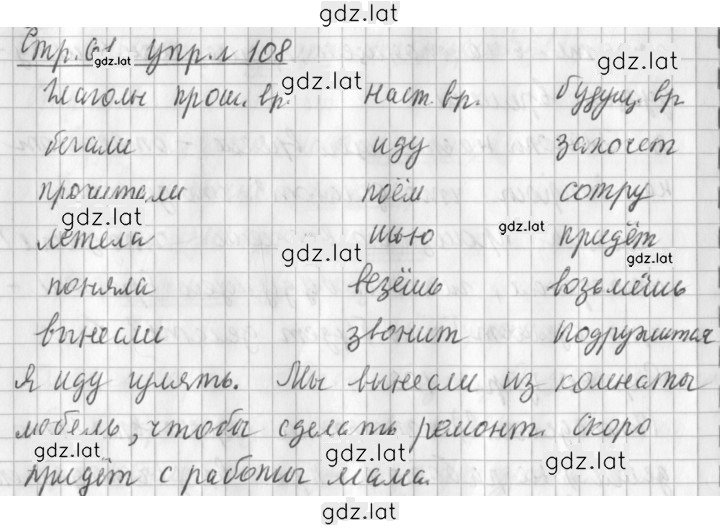 gdz.lat
Стр. 61 упр. 108
gdz.lat
Глаголы прош. вр. наст. вр. будущ. вр
gdz.lat gdz.lat
бегали иду захочет
прочитали поём сотру
gdz.lat
летела шью придёт
gdz.lat gdz.lat gdz.lat
поняла везёшь возьмёшь
вынесли звонит подружится
Я иду гулять. Мы вынесли из комнаты
мебель, чтобы сделать ремонт. Скоро
gdz.lat gdz.lat gdz.lat
придёт с работы мама.
gdz.lat